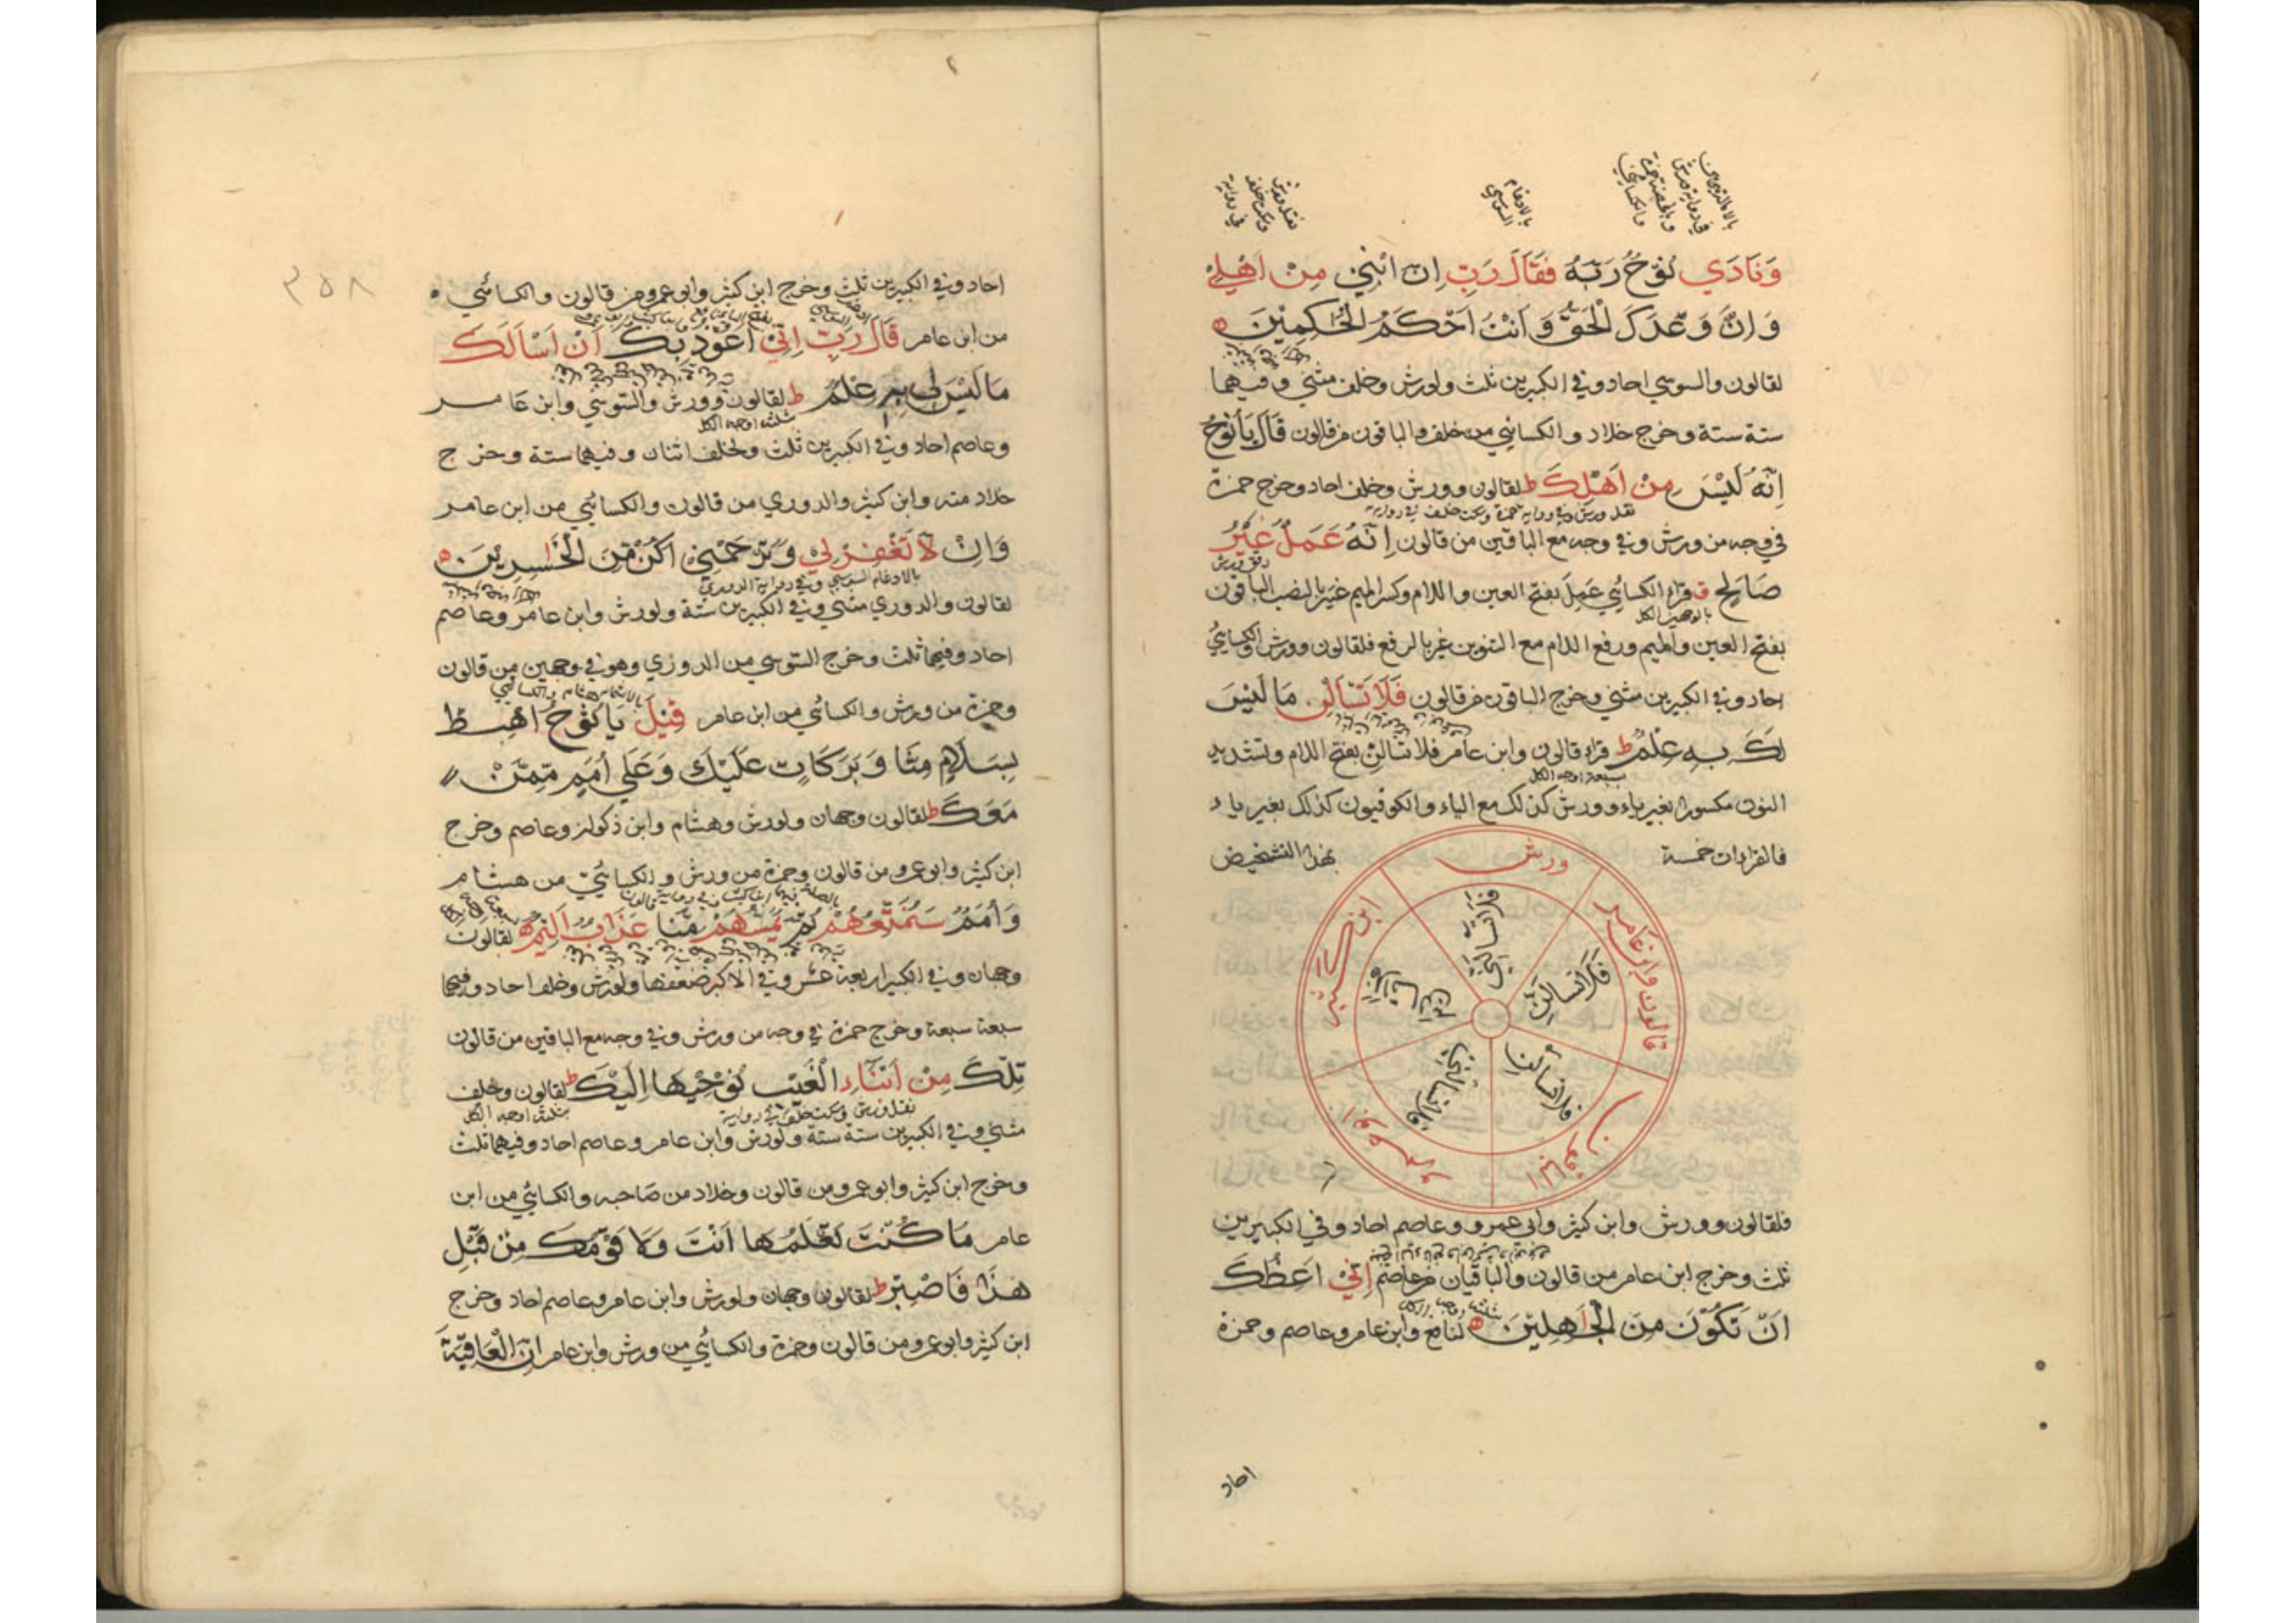 وَنَادَي نُوْحُ رَبَّهُ فَقَالَ رَبِّ اِنَّ ابْنِيْ مِنْ اَهْلِيْ
وَاِنَّ وَعْدَكَ الْحَقُّ وَاَنْتَ اَحْكَمُ الْحٰكِمِيْنَ
لقالون والسوسي احاد وفي الكبيرين ثلث ولورش وخلف مثني وفيهما
ستة ستة وخرج خلاد والكسائي من خلف والباقون من قالون قَالَ يَا نُوْحُ
اِنَّهُ لَيْسَ مِنْ اَهْلِكَ ط لقالون وورش وخلف احاد وخرج حمزة
نقل ورش وفي رواية حمزة وسكت خلف في رواية
في وجه من ورش وفي وجه مع الباقين من قالون اِنَّهُ عَمَلٌ غَيْرُ
صَالِحٍ ق قراء الكسائي عَمِلَ بفتح العين واللام وكسر الميم غير بالنصب الباقون
بفتح العين والميم ورفع اللام مع التنوين غير بالرفع فلقالون وورش والكسائي
احاد وفي الكبيرين مثني وخرج الباقون من قالون فَلَا تَسْاَلْنِ مَا لَيْسَ
لَكَ بِهِ عِلْمٌ ط قراء قالون وابن عامر فلا تسالنّ بفتح اللام وتشديد
سبعة اوجه الكل
النون مكسورا بغير ياء وورش كذلك مع الياء والكوفيون كذلك بغير ياء
فالقراءات خمسة بهذا التشخيض
ورش
قالون وابن عامر
الباقين
ابن كثير
فلقالون وورش وابن كثير وابي عمرو وعاصم احاد وفي الكبيرين
ثلث وخرج ابن عامر من قالون والباقيان من عاصم اِنِّيْ اَعِظُكَ
اَنْ تَكُوْنَ مِنَ الْجَاهِلِيْنَ لنافع وابن عامر وعاصم وحمزة
احاد
٣٥٨
احاد وفي الكبيرين ثلث وخرج ابن كثير وابو عمرو من قالون والكسائي
من ابن عامر قَالَ رَبِّ اِنِّيْ اَعُوْذُ بِكَ اَنْ اَسْاَلَكَ
مَا لَيْسَ لِي بِهِ عِلْمٌ ط لقالون وورش والسوسي وابن عامر
ثلثة اوجه الكل
وعاصم احاد وفي الكبيرين ثلث ولخلف اثنان وفيهما ستة وخرج
خلاد منه وابن كثير والدوري من قالون والكسائي من ابن عامر
وَاِنْ لَّا تَغْفِرْ لِيْ وَتَرْحَمْنِيْ اَكُنْ مِّنَ الْخَاسِرِيْنَ
بالادغام السوسي وفي رواية الدوري
لقالون والدوري مثني وفي الكبيرين ستة ولورش وابن عامر وعاصم
احاد وفيهما ثلث وخرج السوسي من الدوري وهو في وجهين من قالون
بالاشمام هشام والكسائي
وحمزة من ورش والكسائي من ابن عامر قِيْلَ يَا نُوْحُ اهْبِطْ
بِسَلَامٍ مِنَّا وَبَرَكَاتٍ عَلَيْكَ وَعَلَي اُمَمٍ مِّمَّنْ
مَعَكَ ط لقالون وجهان ولورش وهشام وابن ذكوان وعاصم وخرج
ابن كثير وابو عمرو من قالون وحمزة من ورش والكسائيّ من هشام
وَاُمَمٌ سَنُمَتِّعُهُمْ ثُمَّ يَمَسُّهُمْ مِّنَّا عَذَابٌ اَلِيْمٌ لقالون
وجهان وفي الكبير اربعة عشر وفي الاكبر ضعفها ولورش وخلف احاد وفيهما
سبعة سبعة وخرج حمزة في وجه من ورش وفي وجه مع الباقين من قالون
تِلْكَ مِنْ اَنْبَاءِ الْغَيْبِ نُوْحِيْهَا اِلَيْكَ ط لقالون وخلف
نقل ورش وسكت خلف في رواية ثلثة اوجه الكل
مثني وفي الكبيرين ستة ستة ولورش وابن عامر وعاصم احاد وفيهما ثلث
وخرج ابن كثير وابو عمرو من قالون وخلاد من صاحبه والكسائي من ابن
عامر مَا كُنْتَ تَعْلَمُهَا اَنْتَ وَلَا قَوْمُكَ مِنْ قَبْلِ
هٰذَا فَاصْبِرْ ط لقالون وجهان ولورش وابن عامر وعاصم احاد وخرج
ابن كثير وابو عمرو من قالون وحمزة والكسائي من ورش وابن عامر اِنَّ الْعَاقِبَةَ